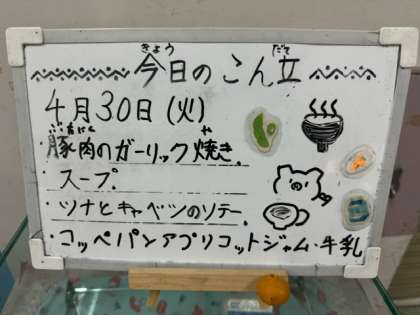 今日のこん立
4月30日(火)
・豚肉のガーリック焼き
・スープ
・ツナとキャベツのソテー
・コッペパンとアプリコットジャム・牛乳